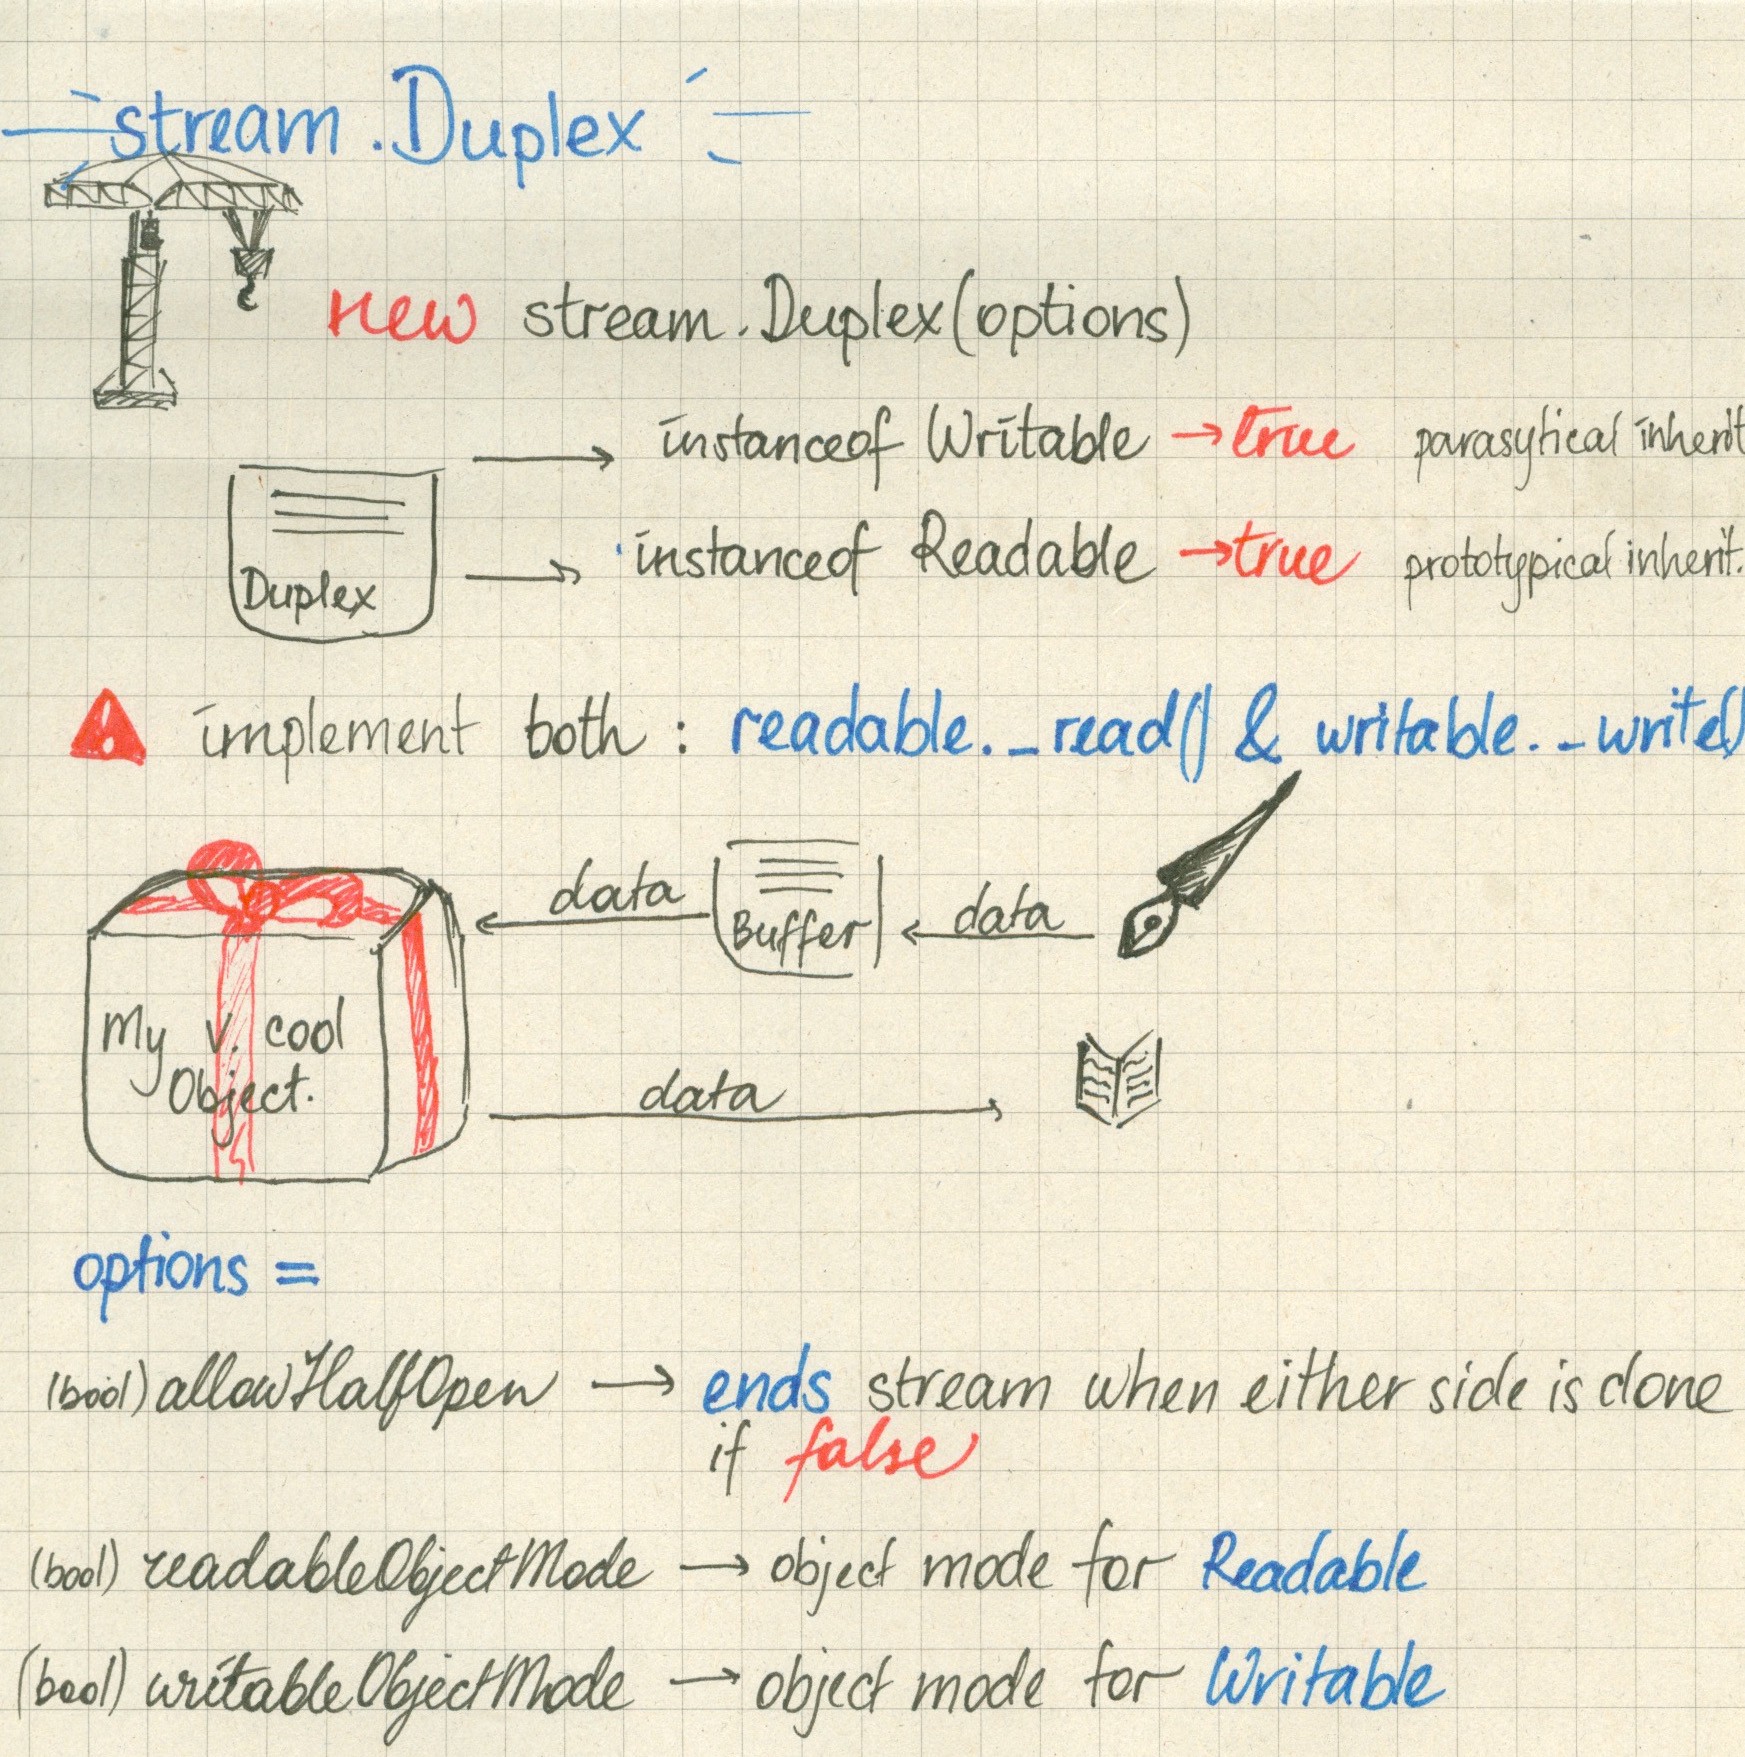 stream.Duplex
new stream.Duplex(options)
instanceof Writable → true parasytical inherit
instanceof Readable → true prototypical inherit.
Duplex
! implement both : readable._read() & writable._write()
data
Buffer
data
My v. cool
Object.
data
options =
(bool) allowHalfOpen → ends stream when either side is done
if false
(bool) readableObjectMode → object mode for Readable
(bool) writableObjectMode → object mode for Writable